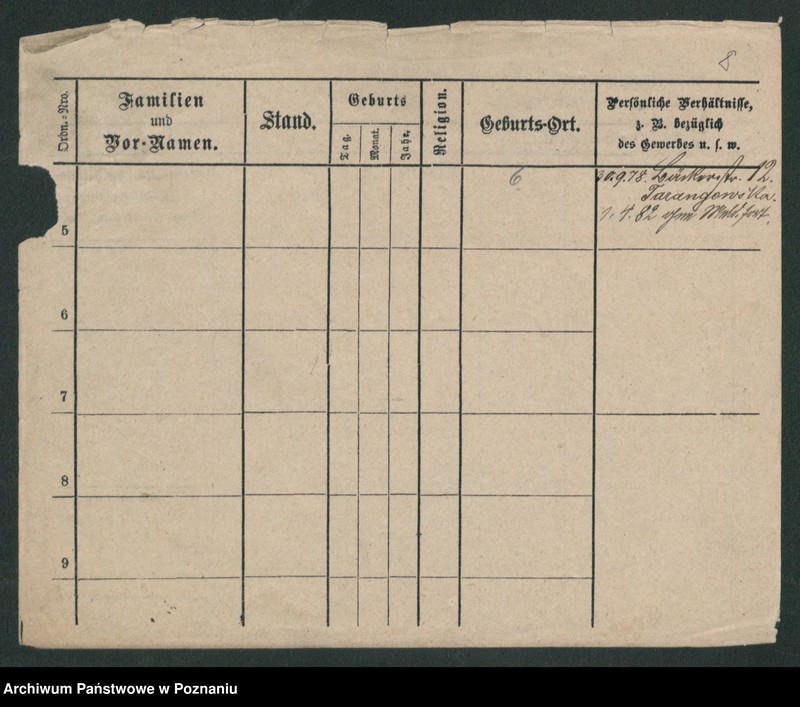 8
Ordn.=Nro.
Familien
und
Vor-Namen.
Stand.
Geburts
Tag.
Monat.
Jahr.
Religion.
Geburts-Ort.
Persönliche Verhältnisse,
z. B. bezüglich
des Gewerbes u. s. w.
6
30.9.78. Bäckerstr. 12.
Tarangowska.
1. 4. 82 fort.
5
6
7
8
9
Archiwum Państwowe w Poznaniu